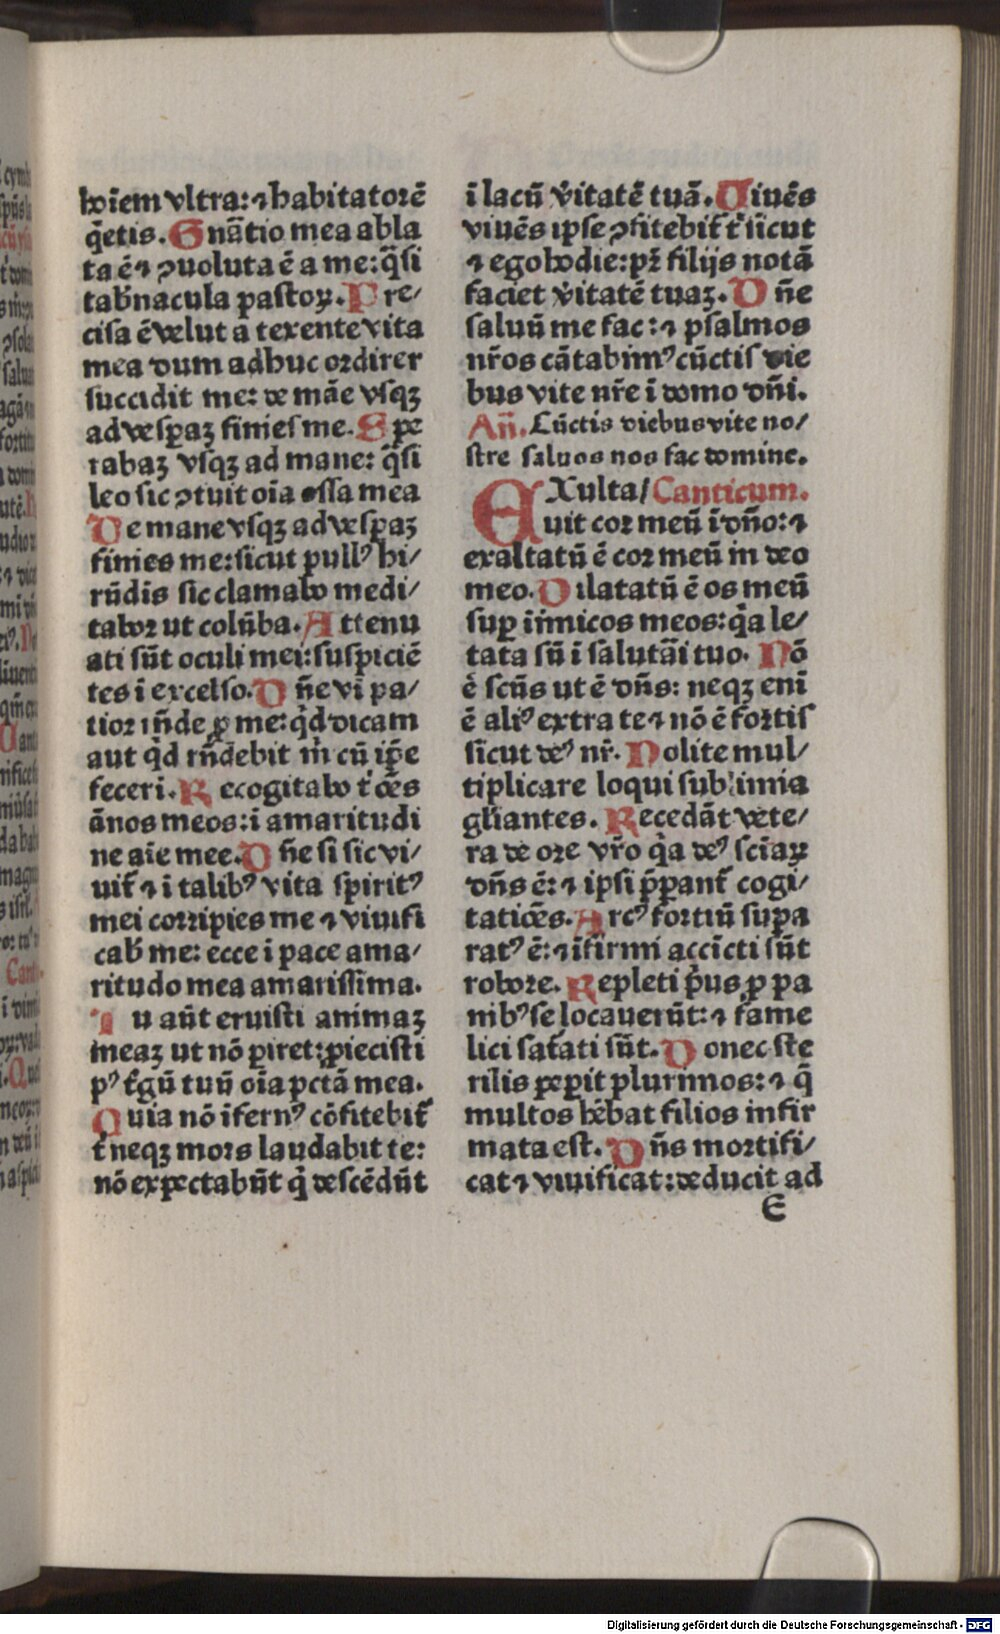 hoīem vltra: ⁊ habitatorē
q̄etis. Gnãtio mea abla
ta ē ⁊ ꝯuoluta ē a me: q̄si
tab̃nacula pastoꝝ. Pre/
cisa ē velut a texente vita
mea dum adhuc ordirer
succidit me: de māe vsqꝫ
ad vesꝑaꝫ finies me. Spe
rabaꝫ vsqꝫ ad mane: q̄si
leo sic ꝯtuit oīa ossa mea
De mane vsqꝫ ad vesꝑaꝫ
finies me: sicut pullꝰ hi/
rūdis sic clamabo medi/
tabor ut colūba. Attenu
ati sūt oculi mei: suspiciē
tes i excelso. Dñe vī pa/
tior rñde ꝓ me: qͥd dicam
aut qͥd rñdebit mͥ cū ip̄e
feceri. Recogitabo tͥ oēs
ānos meos: i amaritudi
ne aīe mee. Dñe si sic vi/
uit̃ ⁊ i talibꝰ vita spiritꝰ
mei corripies me ⁊ viuifi
cab̃ me: ecce i pace ama/
ritudo mea amarissima.
Tu aūt eruisti animaꝫ
meaꝫ ut nō ꝑiret: ꝓiecisti
pꝰ t̃gū tuū oīa pctā mea.
Quia nō ifernꝰ cōfitebit̃
tͥ neqꝫ mors laudabit te:
nō expectabūt qͥ descēdūt
i lacū v̓itatē tuā. Viuēs
viuēs ipse ꝯfitebit̃ tͥ sicut
⁊ ego hodie: pr̄ filijs notā
faciet v̓itatē tuaꝫ. Dñe
saluū me fac: ⁊ psalmos
nr̄os cātabimꝰ cūctis die
bus vite nr̄e i domo dñi.
Añ. Cūctis diebus vite no/
stre saluos nos fac domine.
EXulta/ Canticum.
uit cor meū i dño: ⁊
exaltatū ē cor meū in deo
meo. Dilatatū ē os meū
suꝑ inimicos meos: qͥa le/
tata sū i salutāi tuo. Nō
ē scūs ut ē dñs: neqꝫ enī
ē aliꝰ extra te ⁊ nō ē fortis
sicut deꝰ nr̄. Nolite mul/
tiplicare loqui sublimia
gl̄iantes. Recedāt vete/
ra de ore vr̄o qͥa deꝰ sciāꝝ
dñs ē: ⁊ ipsi p̄ꝑant̃ cogi/
tatiōes. Arcꝰ fortiū suꝑa
ratꝰ ē: ⁊ ifirmi accīcti sūt
robore. Repleti p̓us ꝓ pa
nibꝰ se locauerūt: ⁊ fame
lici sat̃ati sūt. Donec ste
rilis peꝑit plurimos: ⁊ q̄
multos hēbat filios infir
mata est. Dñs mortifi/
cat ⁊ viuificat: deducit ad
E
Digitalisierung gefördert durch die Deutsche Forschungsgemeinschaft - DFG